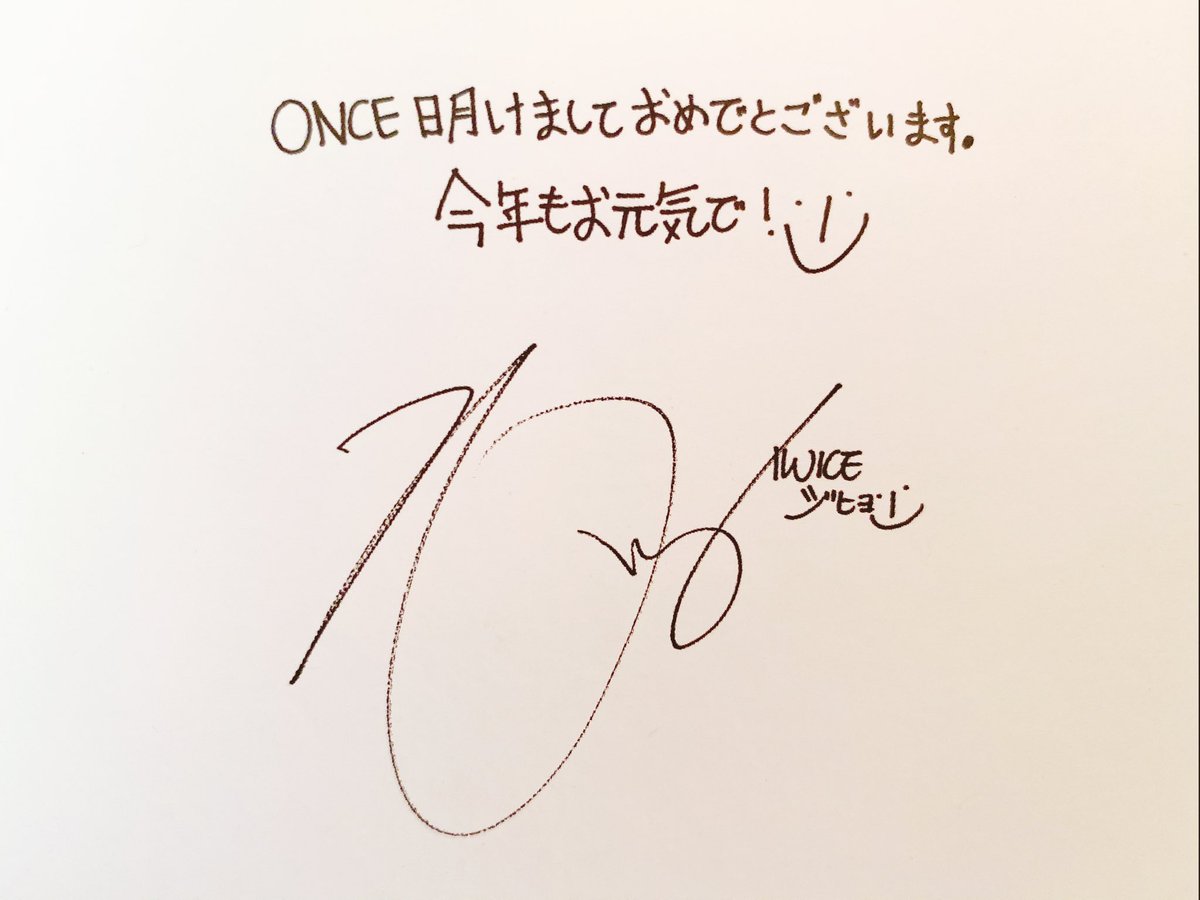 ONCE 明けましておめでとございます。
今年もお元気で!
TWICE
ジヒョ